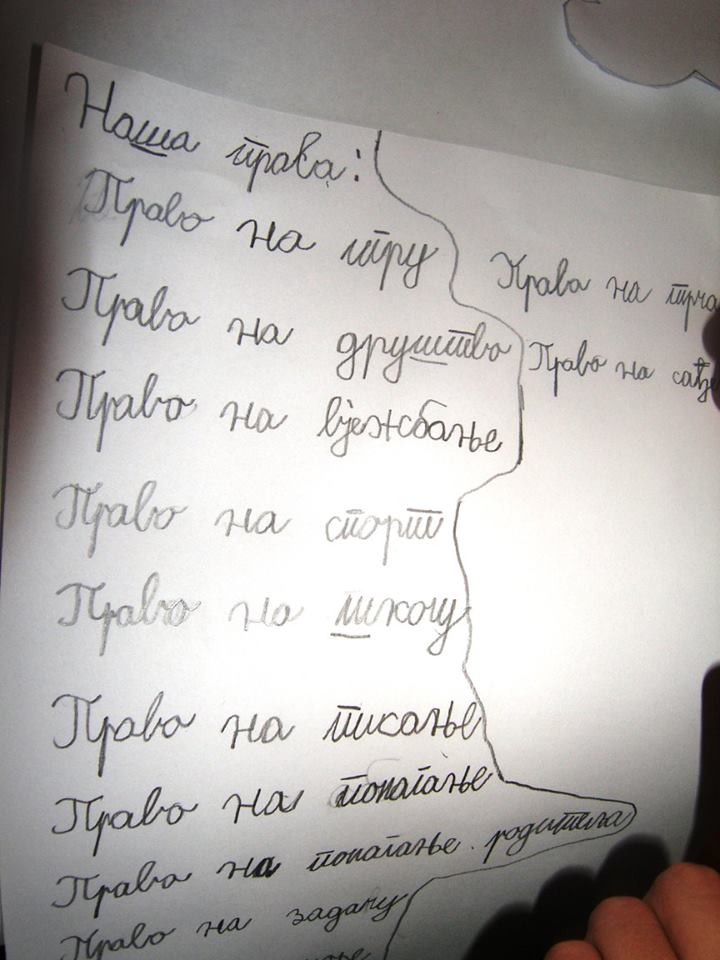 Наша права:
Право на игру
Право на друштво
Право на вјежбање
Право на спорт
Право на школу
Право на писање
Право на помагање
Право на помагање родитеља
Право на задаћу
Право на
Право на